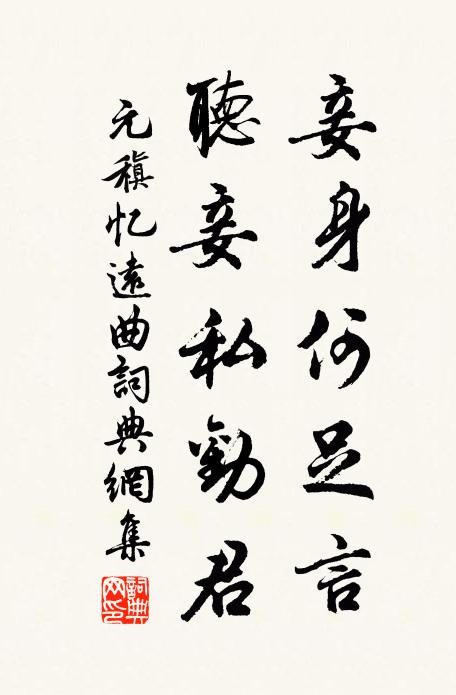 妾身何足言
聽妾私勸君
元稹忆遠曲詞典網集
詞典网印